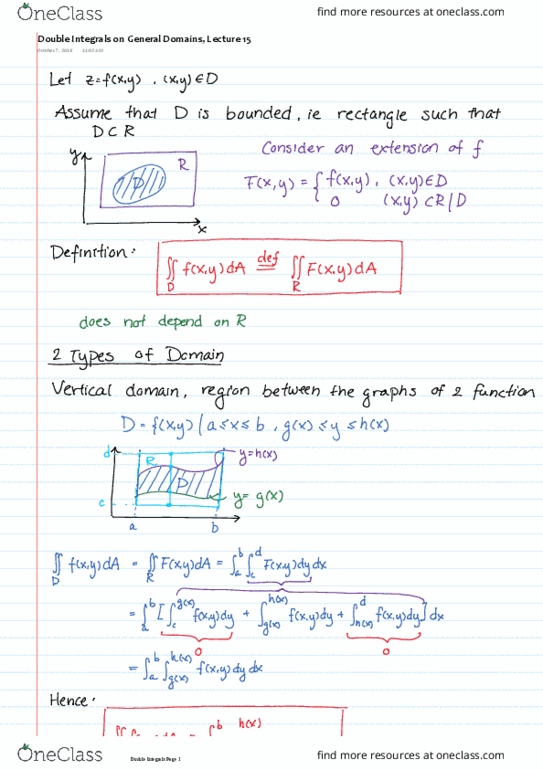 OneClass
find more resources at oneclass.com
Double Integrals on General Domains, Lecture 15
Let z=f(x,y) , (x,y)∈D
Assume that D is bounded, ie rectangle such that
D⊂R
Consider an extension of f
y
R
D
x
F(x,y) = { f(x,y), (x,y)∈D
0 (x,y)⊂R/D
Definition:
∬_D f(x,y)dA =def ∬_R F(x,y)dA
does not depend on R
2 Types of Domain
Vertical domain, region between the graphs of 2 function
D = {(x,y) | a≤x≤b , g(x)≤y≤h(x)
d
R
y=h(x)
D
y= g(x)
c
a b
∬_D f(x,y)dA = ∬_R F(x,y)dA = ∫_a^b ∫_c^d F(x,y)dydx
= ∫_a^b [∫_c^g(x) f(x,y)dy + ∫_g(x)^h(x) f(x,y)dy + ∫_h(x)^d f(x,y)dy] dx
0 0
= ∫_a^b ∫_g(x)^h(x) f(x,y)dydx
Hence:
b h(x)
OneClass
Double Integrals Page 1
find more resources at oneclass.com